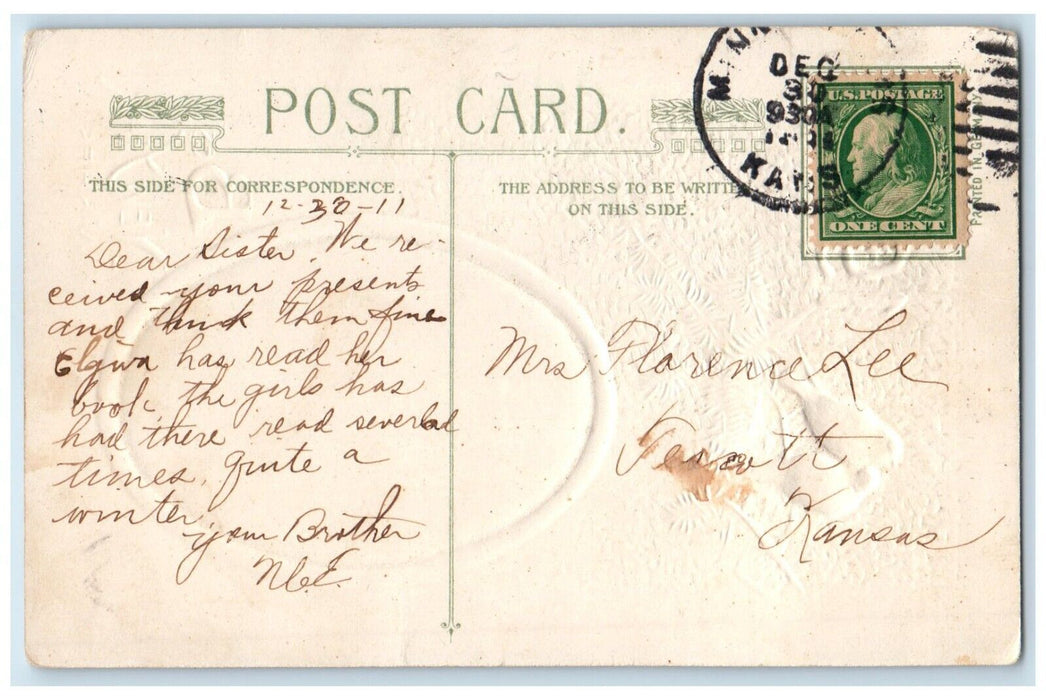 POST CARD.
THIS SIDE FOR CORRESPONDENCE.
12-30-11
Dear Sister, We re-
ceived your presents
and think them fine
Elgiva has read her
book, the girls has
had there read several
times, quite a
winter,
your Brother
THE ADDRESS TO BE WRITTEN
ON THIS SIDE.
Mrs Florence Lee
Tescott
Kansas
DEC
930A
KANS
U.S. POSTAGE
ONE CENT
PRINTED IN GERMANY